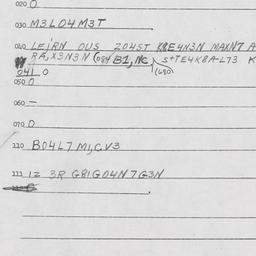 020 0
030 M3LO4M3T
040 LEIRN OUS 204ST K8E4N3N MAXN7 A
RA,X3N3N (084 B1,NC, S+TE4K8A-L73 K
041 0 (680)
050 0
060 —
070 0
110 B04L7 M1,CV3
111 12 3R G81G04N7G3N